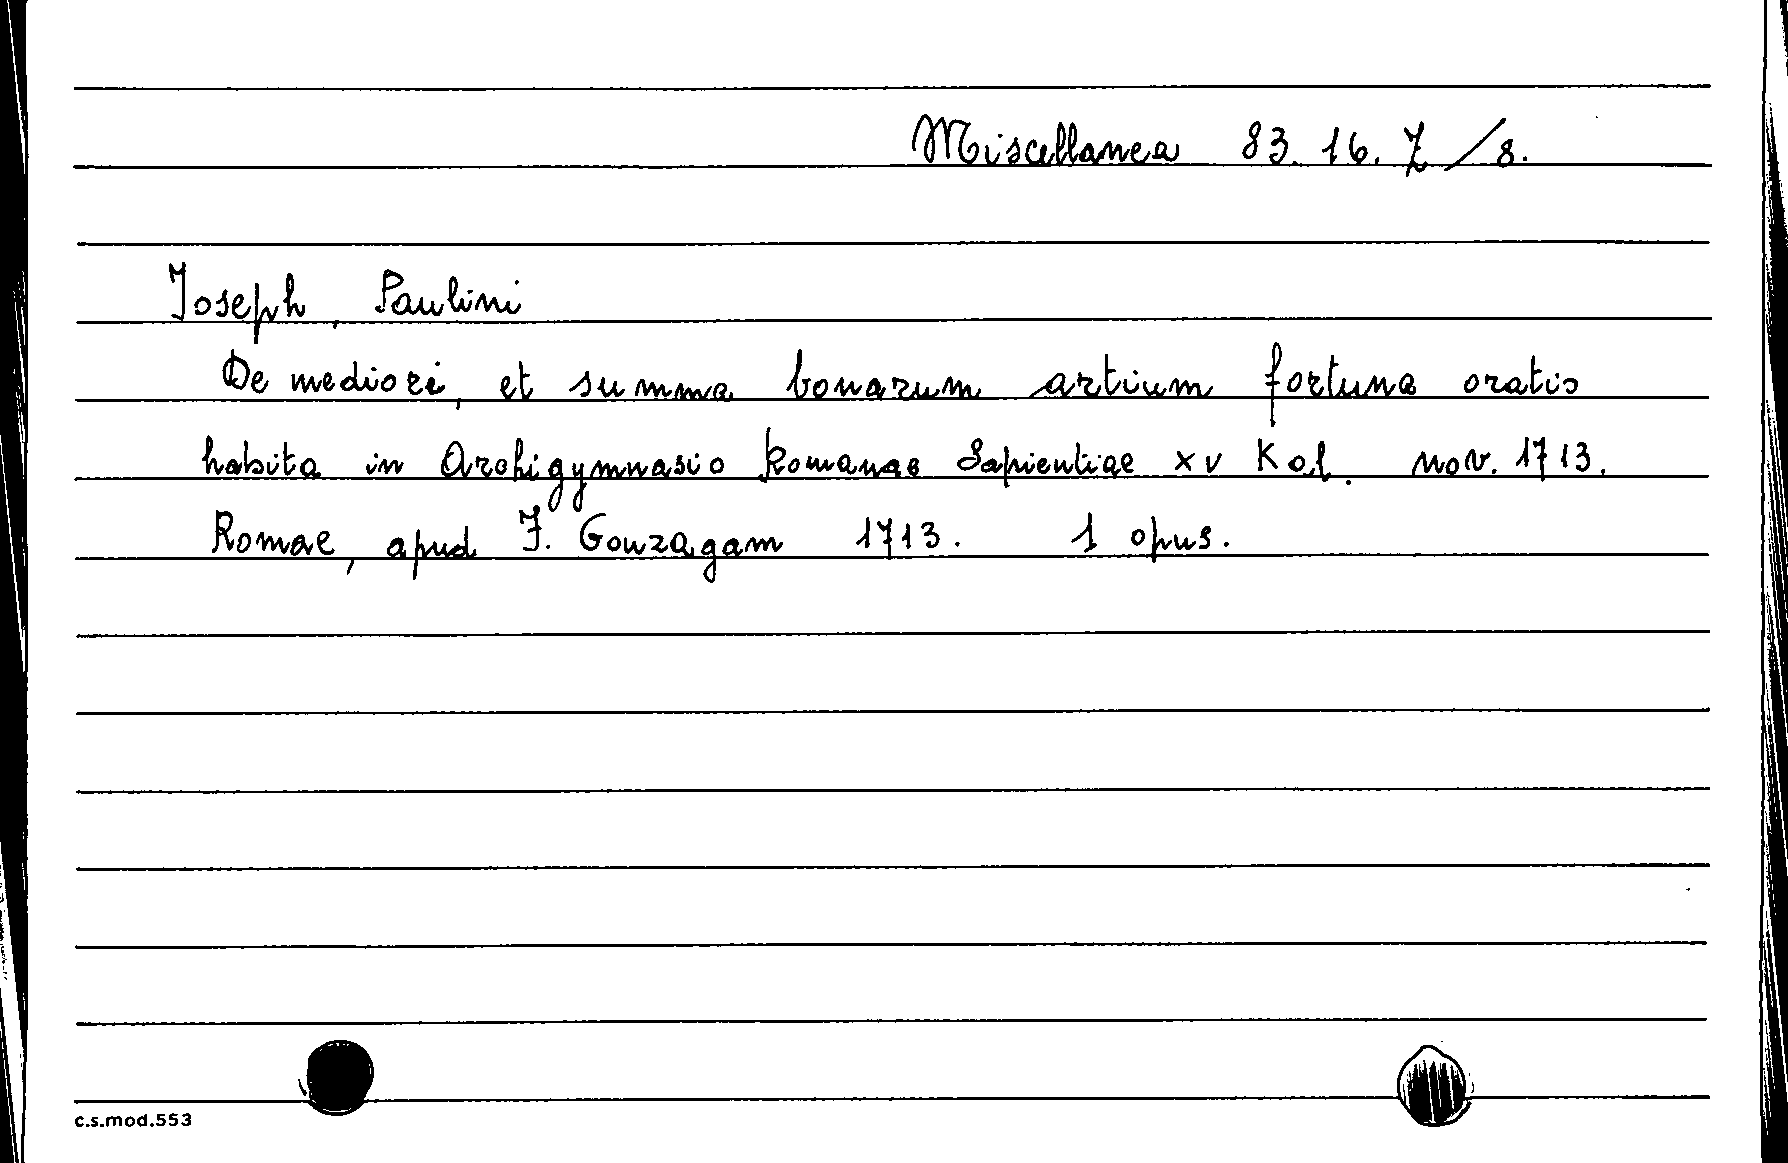 Miscellanea 83. 16. Z / 8.
Joseph, Paulini
De mediori, et summa bonarum artium fortuna oratio
habita in Archigymnasio Romanae Sapientiae XV Kal. nov. 1713.
Romae, apud F. Gonzagam 1713. 1 opus.
c.s.mod.553